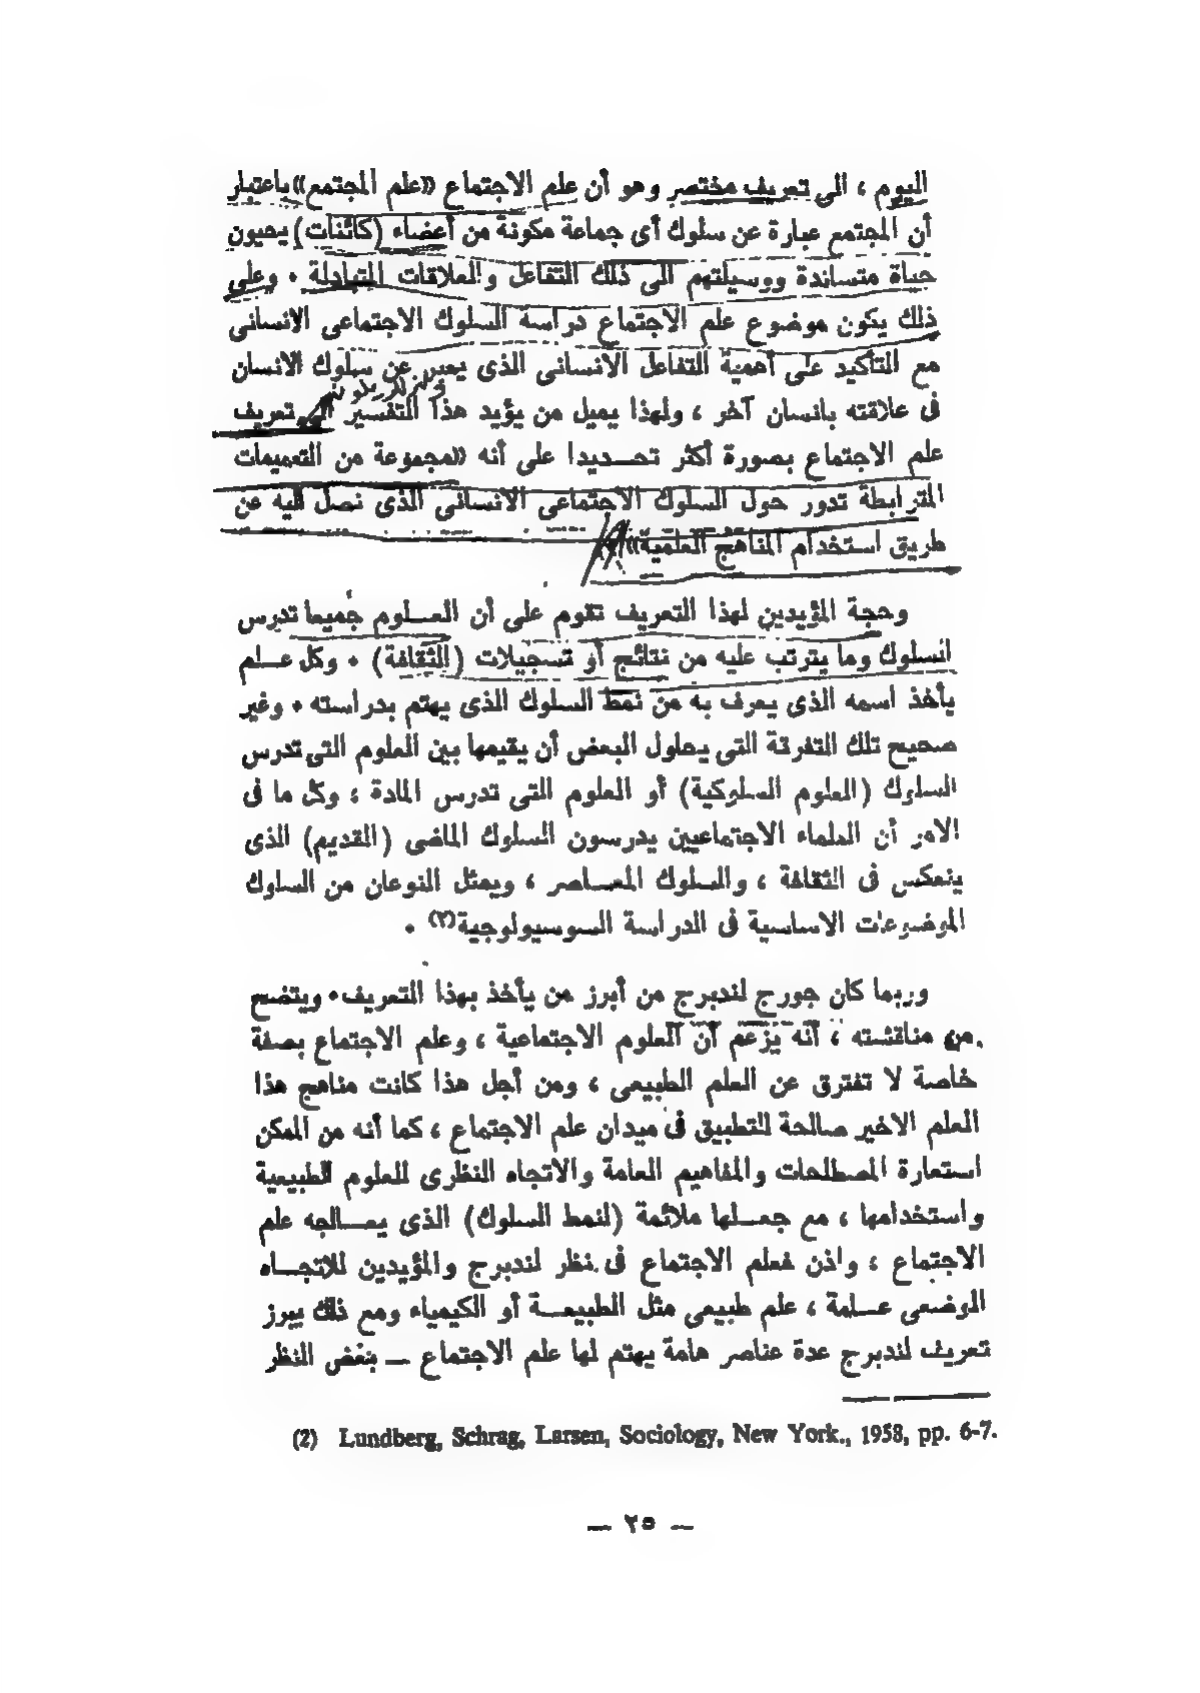 اليوم ، الى تعريف مختصر وهو أن علم الاجتماع «علم المجتمع» باعتبار
أن المجتمع عبارة عن سلوك أى جماعة مكونة من أعضاء (كائنات) يحيون
حياة متساندة ووسيلتهم الى ذلك التفاعل والعلاقات المتبادلة ٠ وعلى
ذلك يكون موضوع علم الاجتماع دراسة السلوك الاجتماعى الانسانى
مع التأكيد على أهمية التفاعل الانسانى الذى يعبر عن سلوك الانسان
فى علاقته بانسان آخر ، ولهذا يميل من يؤيد هذا التفسير الى تعريف
علم الاجتماع بصورة أكثر تحـديدا على أنه «مجموعة من التعميمات
المترابطة تدور حول السلوك الاجتماعى الانسانى الذى نصل اليه عن
طريق استخدام المناهج العلمية»
وحجة المؤيدين لهذا التعريف تقوم على أن العـلوم جميعا تدرس
السلوك وما يترتب عليه من نتائج أو تسجيلات (الثقافة) ٠ وكل عـلم
يأخذ اسمه الذى يعرف به من نمط السلوك الذى يهتم بدراسته ٠ وغير
صحيح تلك التفرقة التى يحاول البعض أن يقيمها بين العلوم التى تدرس
السلوك (العلوم السلوكية) أو العلوم التى تدرس المادة ، وكل ما فى
الامر أن العلماء الاجتماعيين يدرسون السلوك الماضى (القديم) الذى
ينعكس فى الثقافة ، والسلوك المعـاصر ، ويمثل النوعان من السلوك
الموضوعات الاساسية فى الدراسة السوسيولوجية(٢) ٠
وربما كان جورج لندبرج من أبرز من يأخذ بهذا التعريف٠ ويتضح
من مناقشته ، أنه يزعم أن العلوم الاجتماعية ، وعلم الاجتماع بصفة
خاصة لا تفترق عن العلم الطبيعى ، ومن أجل هذا كانت مناهج هذا
العلم الاخير صالحة للتطبيق فى ميدان علم الاجتماع ، كما أنه من الممكن
استعارة المصطلحات والمفاهيم العامة والاتجاه النظرى للعلوم الطبيعية
واستخدامها ، مع جعـلها ملائمة (لنمط السلوك) الذى يعـالجه علم
الاجتماع ، واذن فعلم الاجتماع فى نظر لندبرج والمؤيدين للاتجـاه
الوضعى عـامة ، علم طبيعى مثل الطبيعـة أو الكيمياء ومع ذلك يبرز
تعريف لندبرج عدة عناصر هامة يهتم لها علم الاجتماع ــ بغض النظر
(2) Lundberg, Schrag, Larsen, Sociology, New York., 1958, pp. 6-7.
ــ ٢٥ ــ